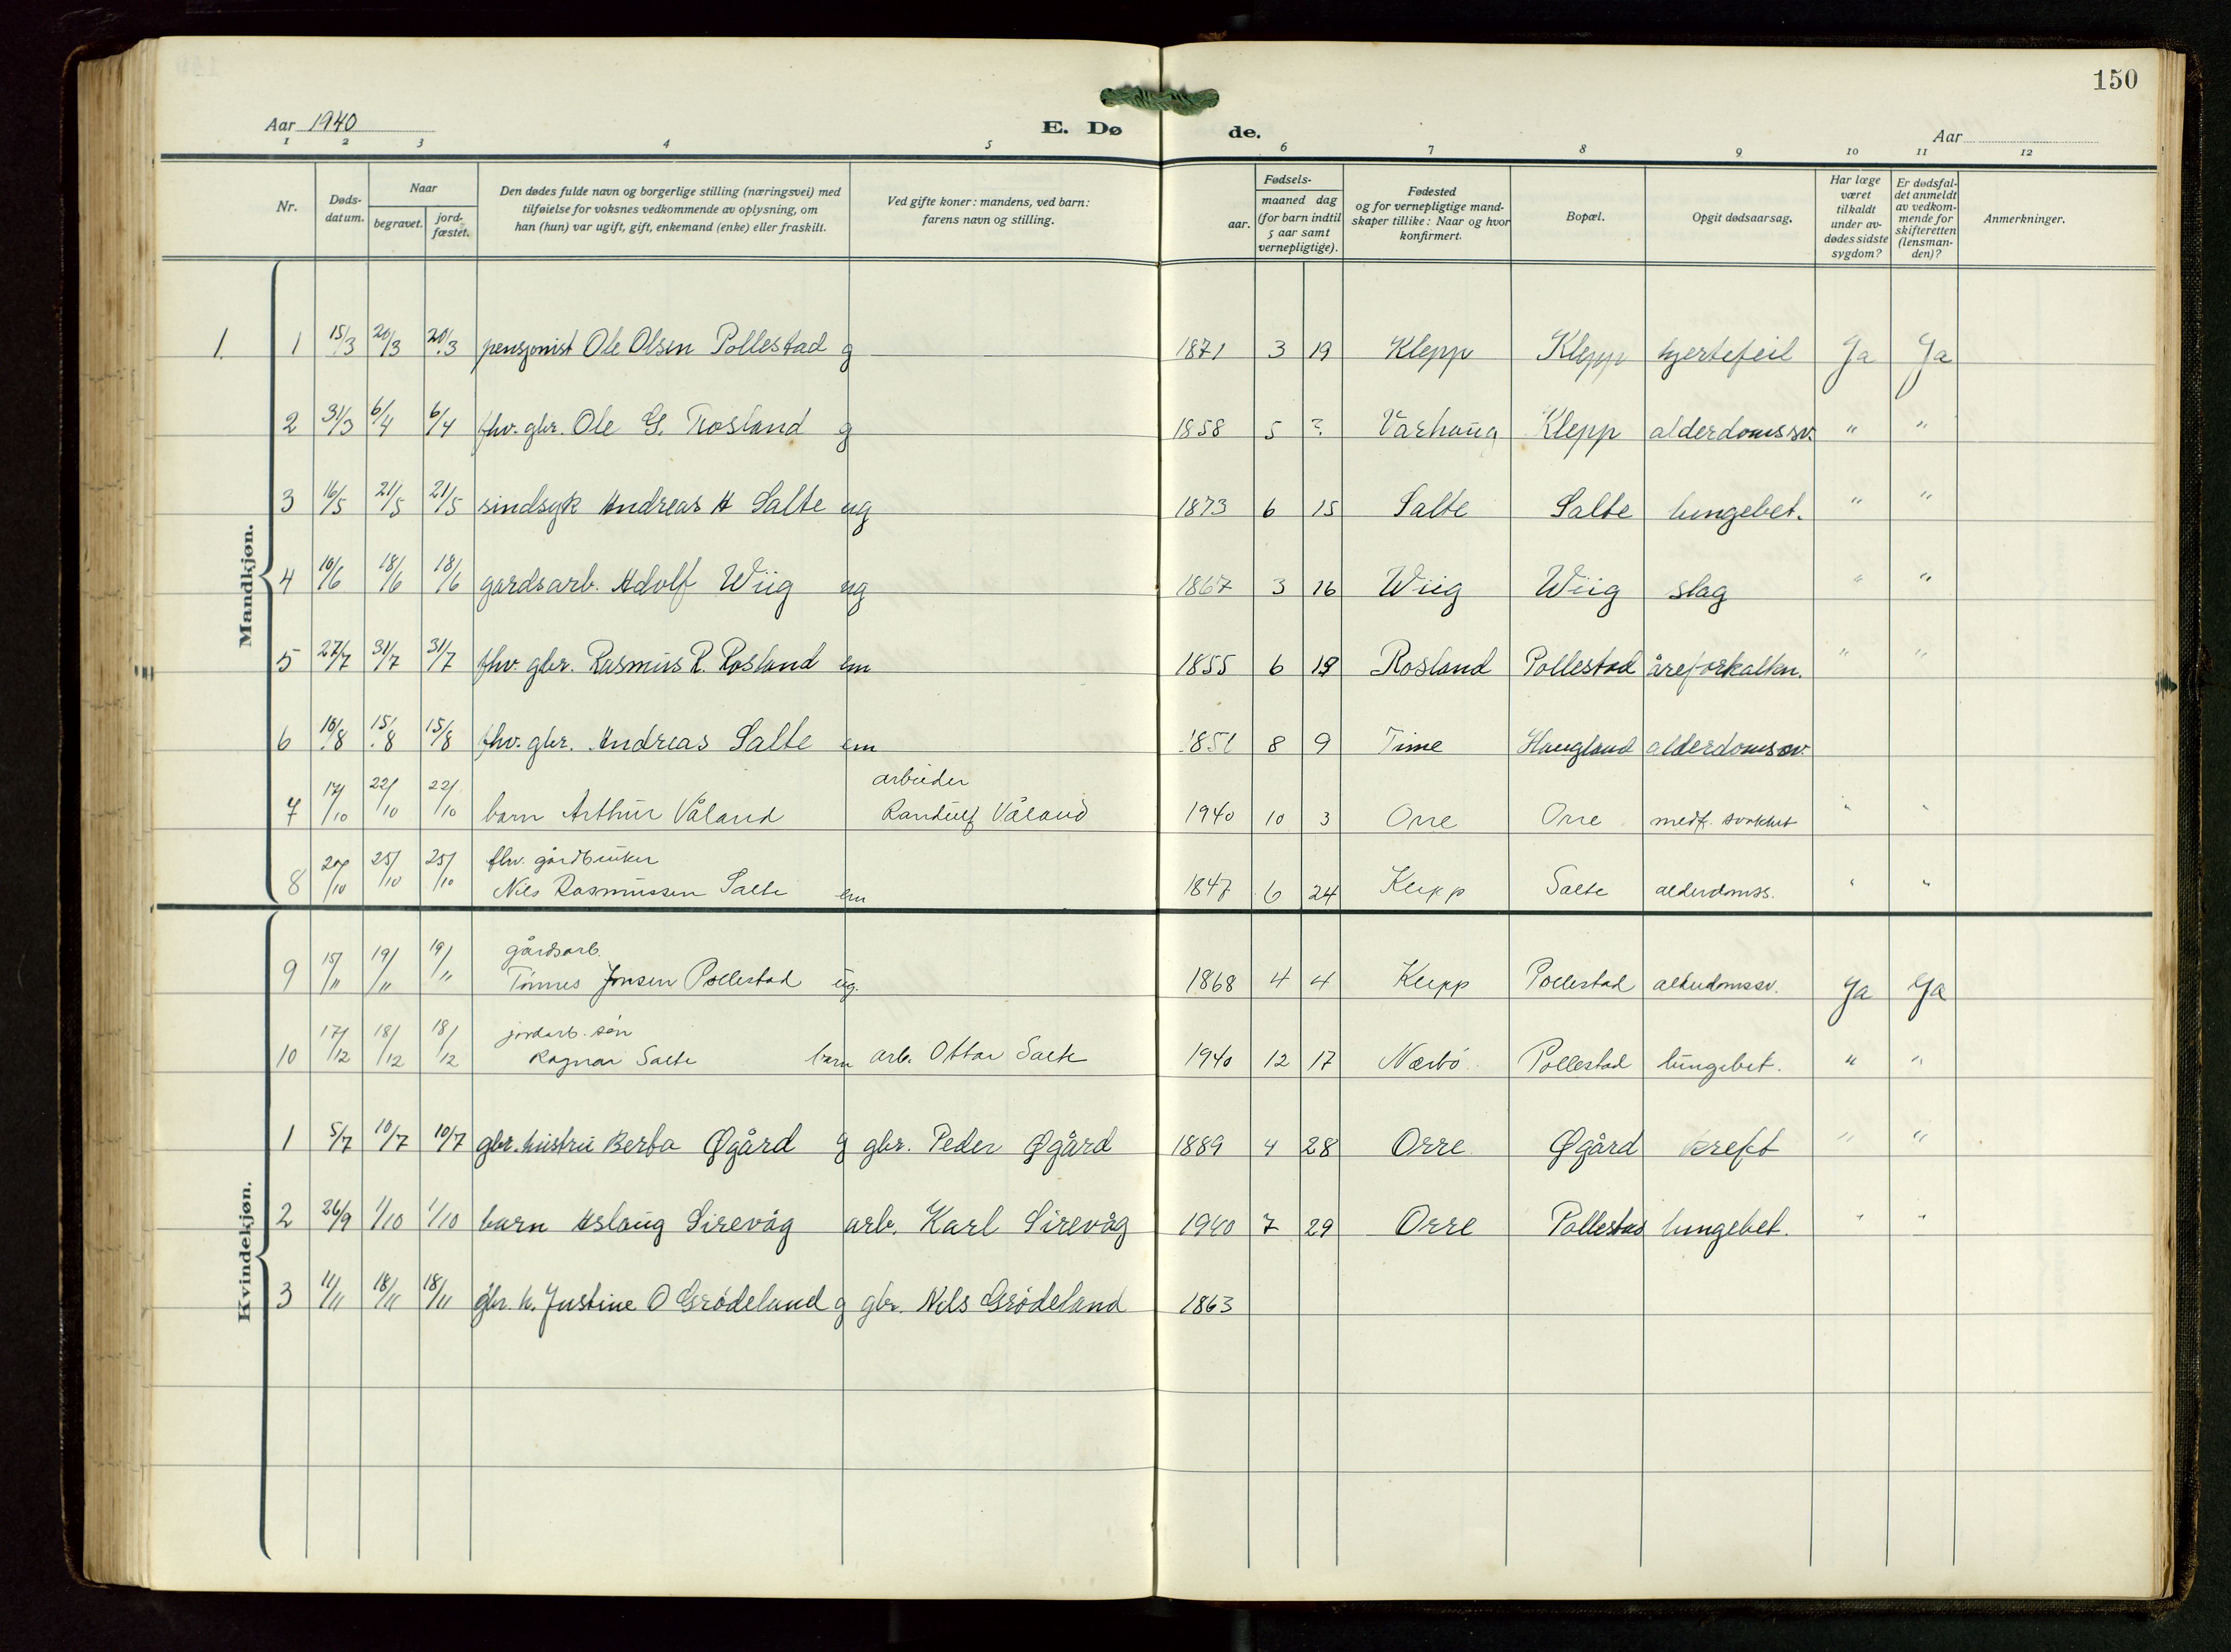 150
Aar 1940
E. Dø de.
Aar
1 2 3 4 5 6 7 8 9 10 11 12
Nr.
Døds-
datum.
Naar
begravet.
jord-
fæstet.
Den dødes fulde navn og borgerlige stilling (næringsvei) med
tilføielse for voksnes vedkommende av oplysning, om
han (hun) var ugift, gift, enkemand (enke) eller fraskilt.
Ved gifte koner: mandens, ved barn:
farens navn og stilling.
Fødsels-
aar.
maaned dag
(for barn indtil
5 aar samt
vernepligtige).
Fødested
og for vernepligtige mand-
skaper tillike: Naar og hvor
konfirmert.
Bopæl.
Opgit dødsaarsag.
Har læge
været
tilkaldt
under av-
dødes sidste
sygdom?
Er dødsfal-
det anmeldt
av vedkom-
mende for
skifteretten
(lensman-
den)?
Anmerkninger.
Mandkjøn.
1. 1 15/3 20/3 20/3 pensjonist Ole Olsen Pollestad g 1871 3 19 Klepp Klepp hjertefeil Ja Ja
2 31/3 6/4 6/4 fhv. gbr. Ole G. Rosland g 1858 5 ? Varhaug Klepp alderdomssv. " "
3 16/5 21/5 21/5 sindsyk Andreas A Salte ug 1873 6 15 Salte Salte lungebet. " "
4 /6 18/6 18/6 gardsarb. Adolf Wiig ug 1867 3 16 Wiig Wiig slag " "
5 27/7 31/7 31/7 fhv. gbr. Rasmus R. Rosland em 1855 6 19 Rosland Pollestad åreforkalkn. " "
6 10/8 15/8 15/8 fhv. gbr. Andreas Salte em 1851 8 9 Time Haugland alderdomssv.
7 17/10 22/10 22/10 barn Arthur Våland arbeider
Randulf Våland 1940 10 3 Orre Orre medf. svakhet " "
8 20/10 25/10 25/10 fhv. gårdbruker
Nils Rasmussen Salte em 1847 6 24 Klepp Salte alderdomss. " "
9 15/11 19/11 19/11 gårdsarb.
Tønnes Jonsen Pollestad ug. 1868 4 4 Klepp Pollestad alderdomssv. Ja Ja
10 17/12 18/12 18/12 jordarb. søn
Ragnar Salte barn arb. Ottar Salte 1940 12 17 Nærbø Pollestad lungebet. " "
Kvindekjøn.
1 5/7 10/7 10/7 gbr. hustru Berta Øgård g gbr. Peder Øgård 1889 4 28 Orre Øgård kreft " "
2 26/9 1/10 1/10 barn Aslaug Sirevåg arb. Karl Sirevåg 1940 7 29 Orre Pollestad lungebet. " "
3 11/11 18/11 18/11 gbr. h. Justine O Grødeland g gbr. Nils Grødeland 1863